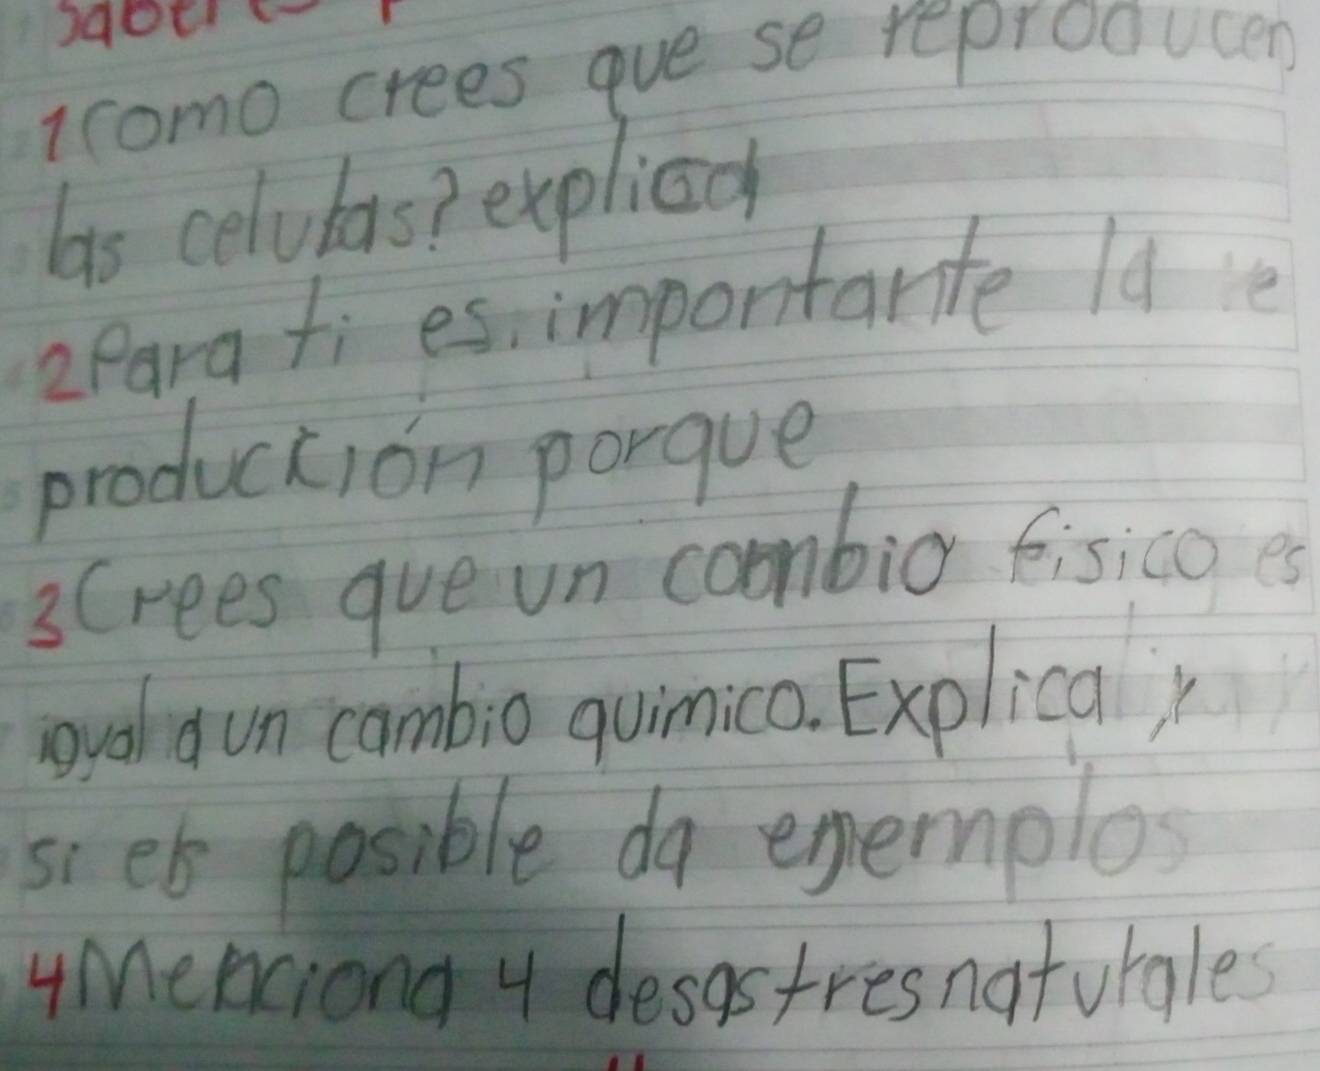 1 como crees que se reproducen
las celulas? explica
2 Para ti es. importante la re
producción porque
3 Crees que un cambio fisico es
igual a un cambio quimico. Explica y
si es posible da ejemplos
4 Menciona 4 desastres naturales